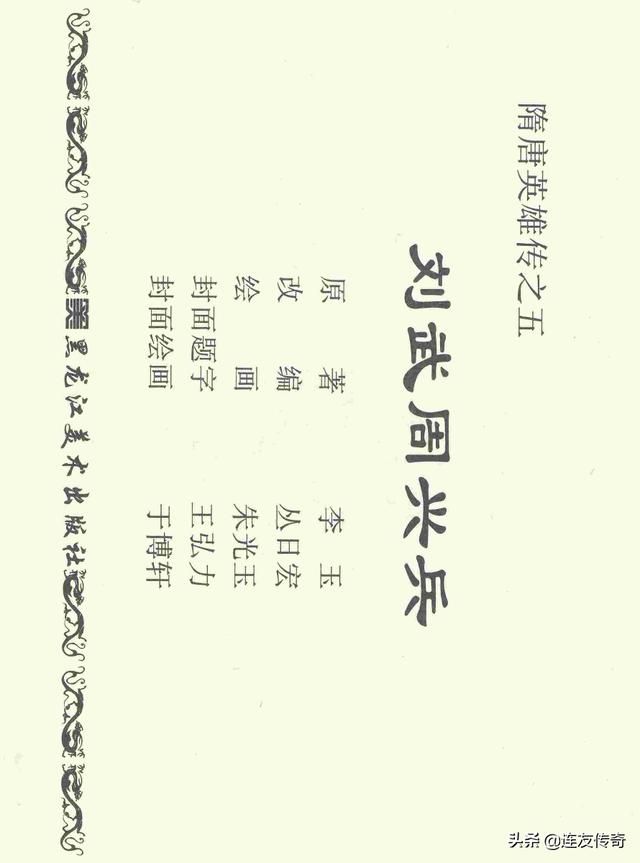 隋唐英雄传之五
刘武周兴兵
原著 李玉
改编 丛日宏
绘画 朱光玉
封面题字 王弘力
封面绘画 于博轩
黑龙江美术出版社
头条 @连友传奇